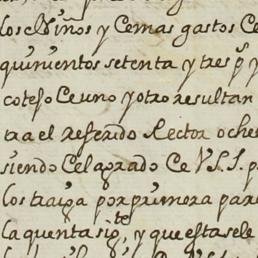 los Niños y Cemas gastos Ce
quinientos setenta y tres p.s y
cotejo Ce uno y otro resultan
tra el referido Rector oche
siendo Cel agrado Ce V.S.I. p
los traiga por primera par
la quenta sig.te, y que esta se le